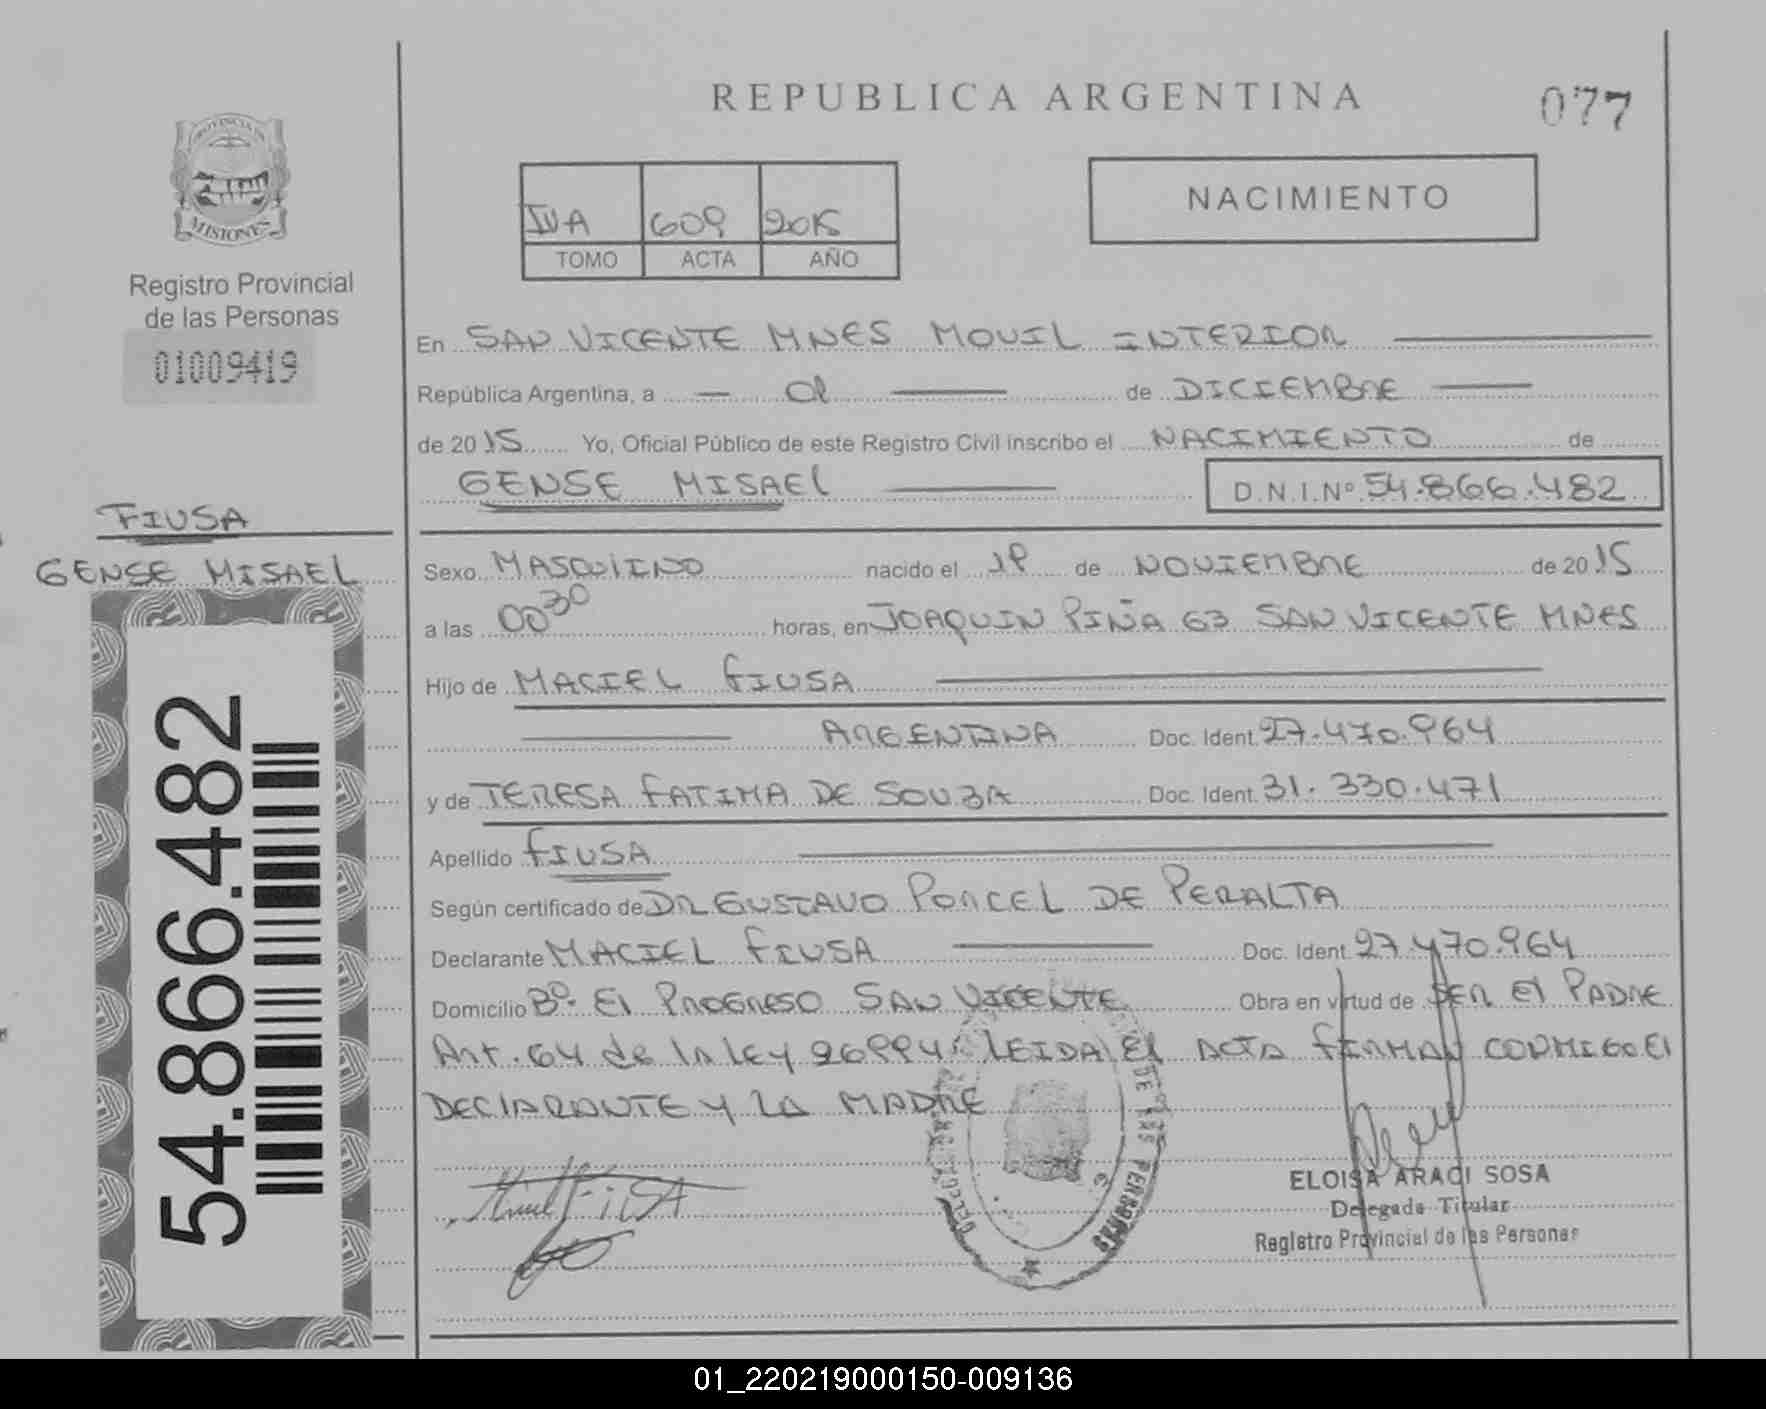 REPUBLICA ARGENTINA
077
PROVINCIA DE
MISIONES
Registro Provincial
de las Personas
01009419
IVA 609 2015
TOMO ACTA AÑO
NACIMIENTO
En SAN VICENTE MNES MOVIL INTERIOR
República Argentina, a de DICIEMBRE
de 2015 Yo, Oficial Público de este Registro Civil inscribo el NACIMIENTO de
GENSE MISAEL D.N.I.Nº 54.866.482
FIUSA
GENSE MISAEL
54.866.482
Sexo MASCULINO nacido el 19 de NOVIEMBRE de 2015
a las 00 30 horas, en JOAQUIN PIÑA 63 SAN VICENTE MNES
Hijo de MACIEL FIUSA
ARGENTINA Doc. Ident. 27.470.964
y de TERESA FATIMA DE SOUZA Doc. Ident. 31.330.471
Apellido FIUSA
Según certificado de DR GUSTAVO PORCEL DE PERALTA
Declarante MACIEL FIUSA Doc. Ident. 27.470.964
Domicilio Bº. El PROGRESO SAN VICENTE Obra en virtud de SER El PADRE
Art. 64 de la ley 26994 LEIDA El ACTA FIRMAN CONMIGO El
DEClARANTE Y LA MADRE
DE LAS PERSONAS
ELOISA ARACI SOSA
Delegada Titular
Registro Provincial de las Personas
01_220219000150-009136